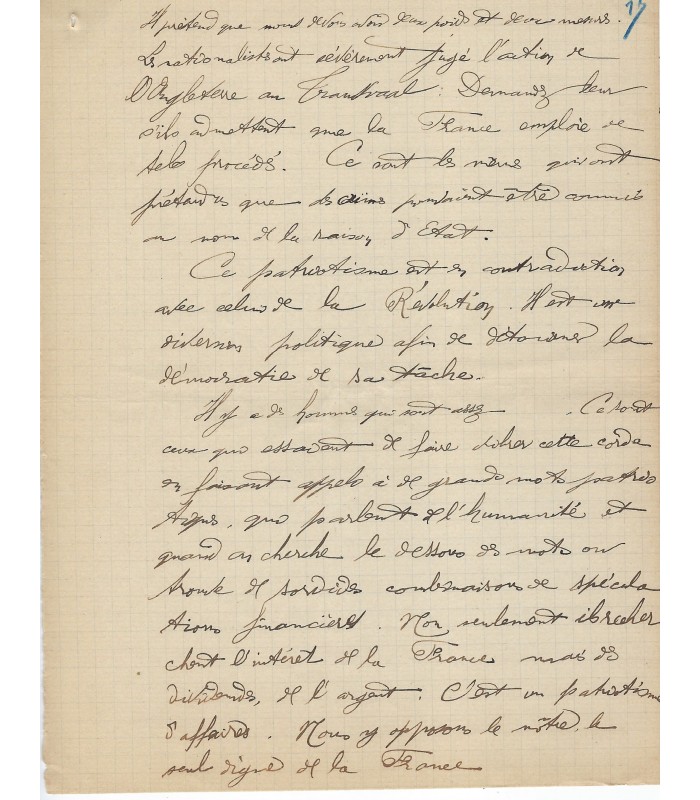 17
Il prétend que nous devons avoir deux poids et deux mesures.
Les nationalistes ont sévèrement jugé l'action de
l'Angleterre au Transvaal : Demandez leur
s'ils admettent que la France emploie de
tels procédés. Ce sont les mêmes qui ont
prétendus que des crimes pouvaient être commis
au nom de la raison d'Etat.
Ce patriotisme est en contradiction
avec celui de la Révolution. Il est une
diversion politique afin de détourner la
démocratie de sa tâche.
Il y a des hommes qui sont assez . Ce sont
ceux qui essaient de faire vibrer cette corde
en faisant appels à de grands mots patrio
tiques, qui parlent de l'humanité et
quand on cherche le dessous des mots on
trouve de sordides combinaisons de spécula
tions financières. Non seulement ils recher
chent l'intéret de la France mais des
dividendes, de l'argent. C'est un patriotisme
d'affaires. Nous y opposons le nôtre, le
seul digne de la France